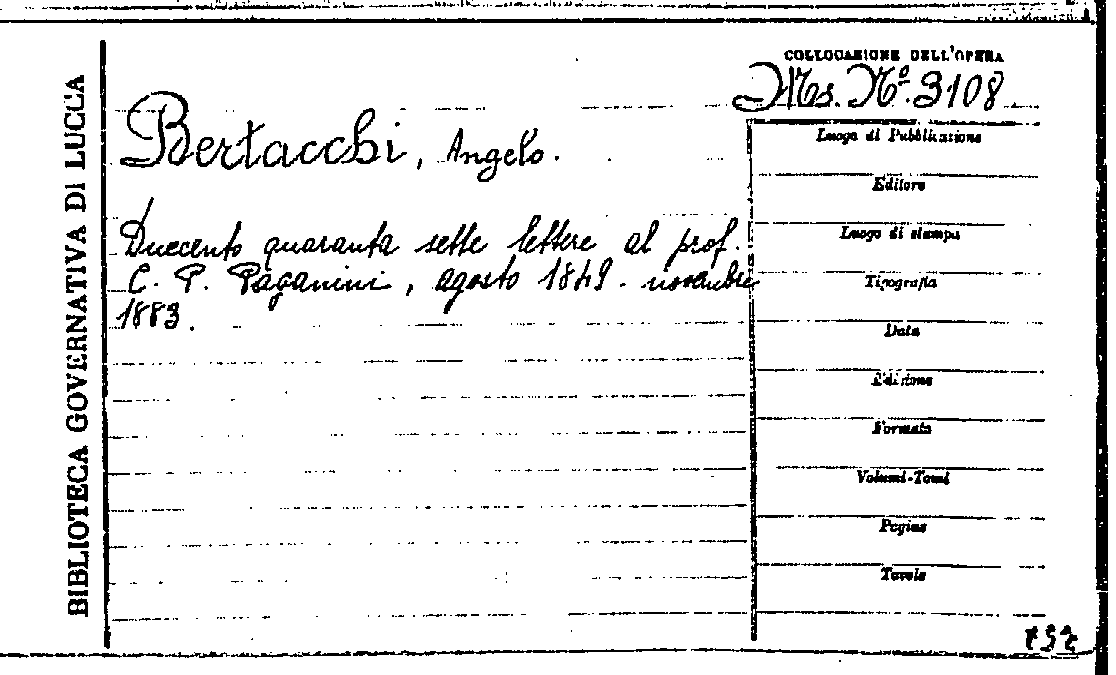 BIBLIOTECA GOVERNATIVA DI LUCCA
COLLOCAZIONE DELL'OPERA
Ms. Nº. 3108
Bertacchi, Angelo.
Duecento quaranta sette lettere al prof.
C. P. Paganini, agosto 1849. novembre
1883.
Luogo di Pubblicazione
Editore
Luogo di stampa
Tipografia
Data
Edizione
Formato
Volumi-Tomi
Pagine
Tavole